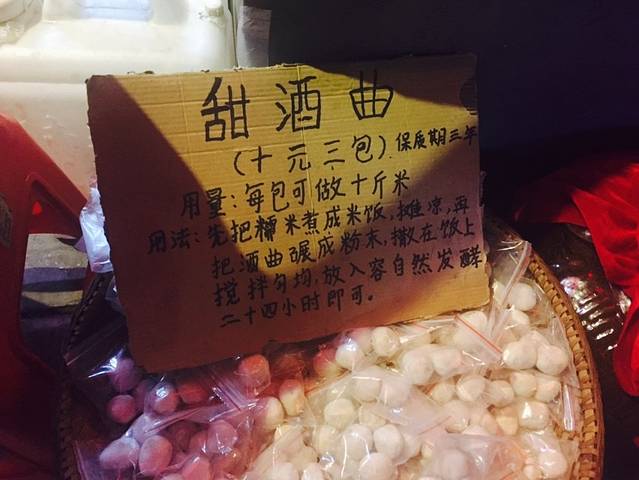 甜酒曲
(十元三包) 保质期三年
用量:每包可做十斤米
用法:先把糯米煮成米饭,摊凉,再
把酒曲碾成粉末,撒在饭上
搅拌匀均,放入容自然发酵
二十四小时即可。